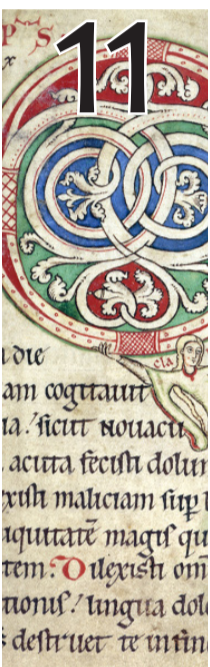 11
P S
x
die
am cogitauit
ia. sicut nouacu
cla
acuta fecisti dolum
xisti maliciam sup b
iquitatē magis qu
tem. Dilexisti om
tionis. lingua dolo
destruet te in fine